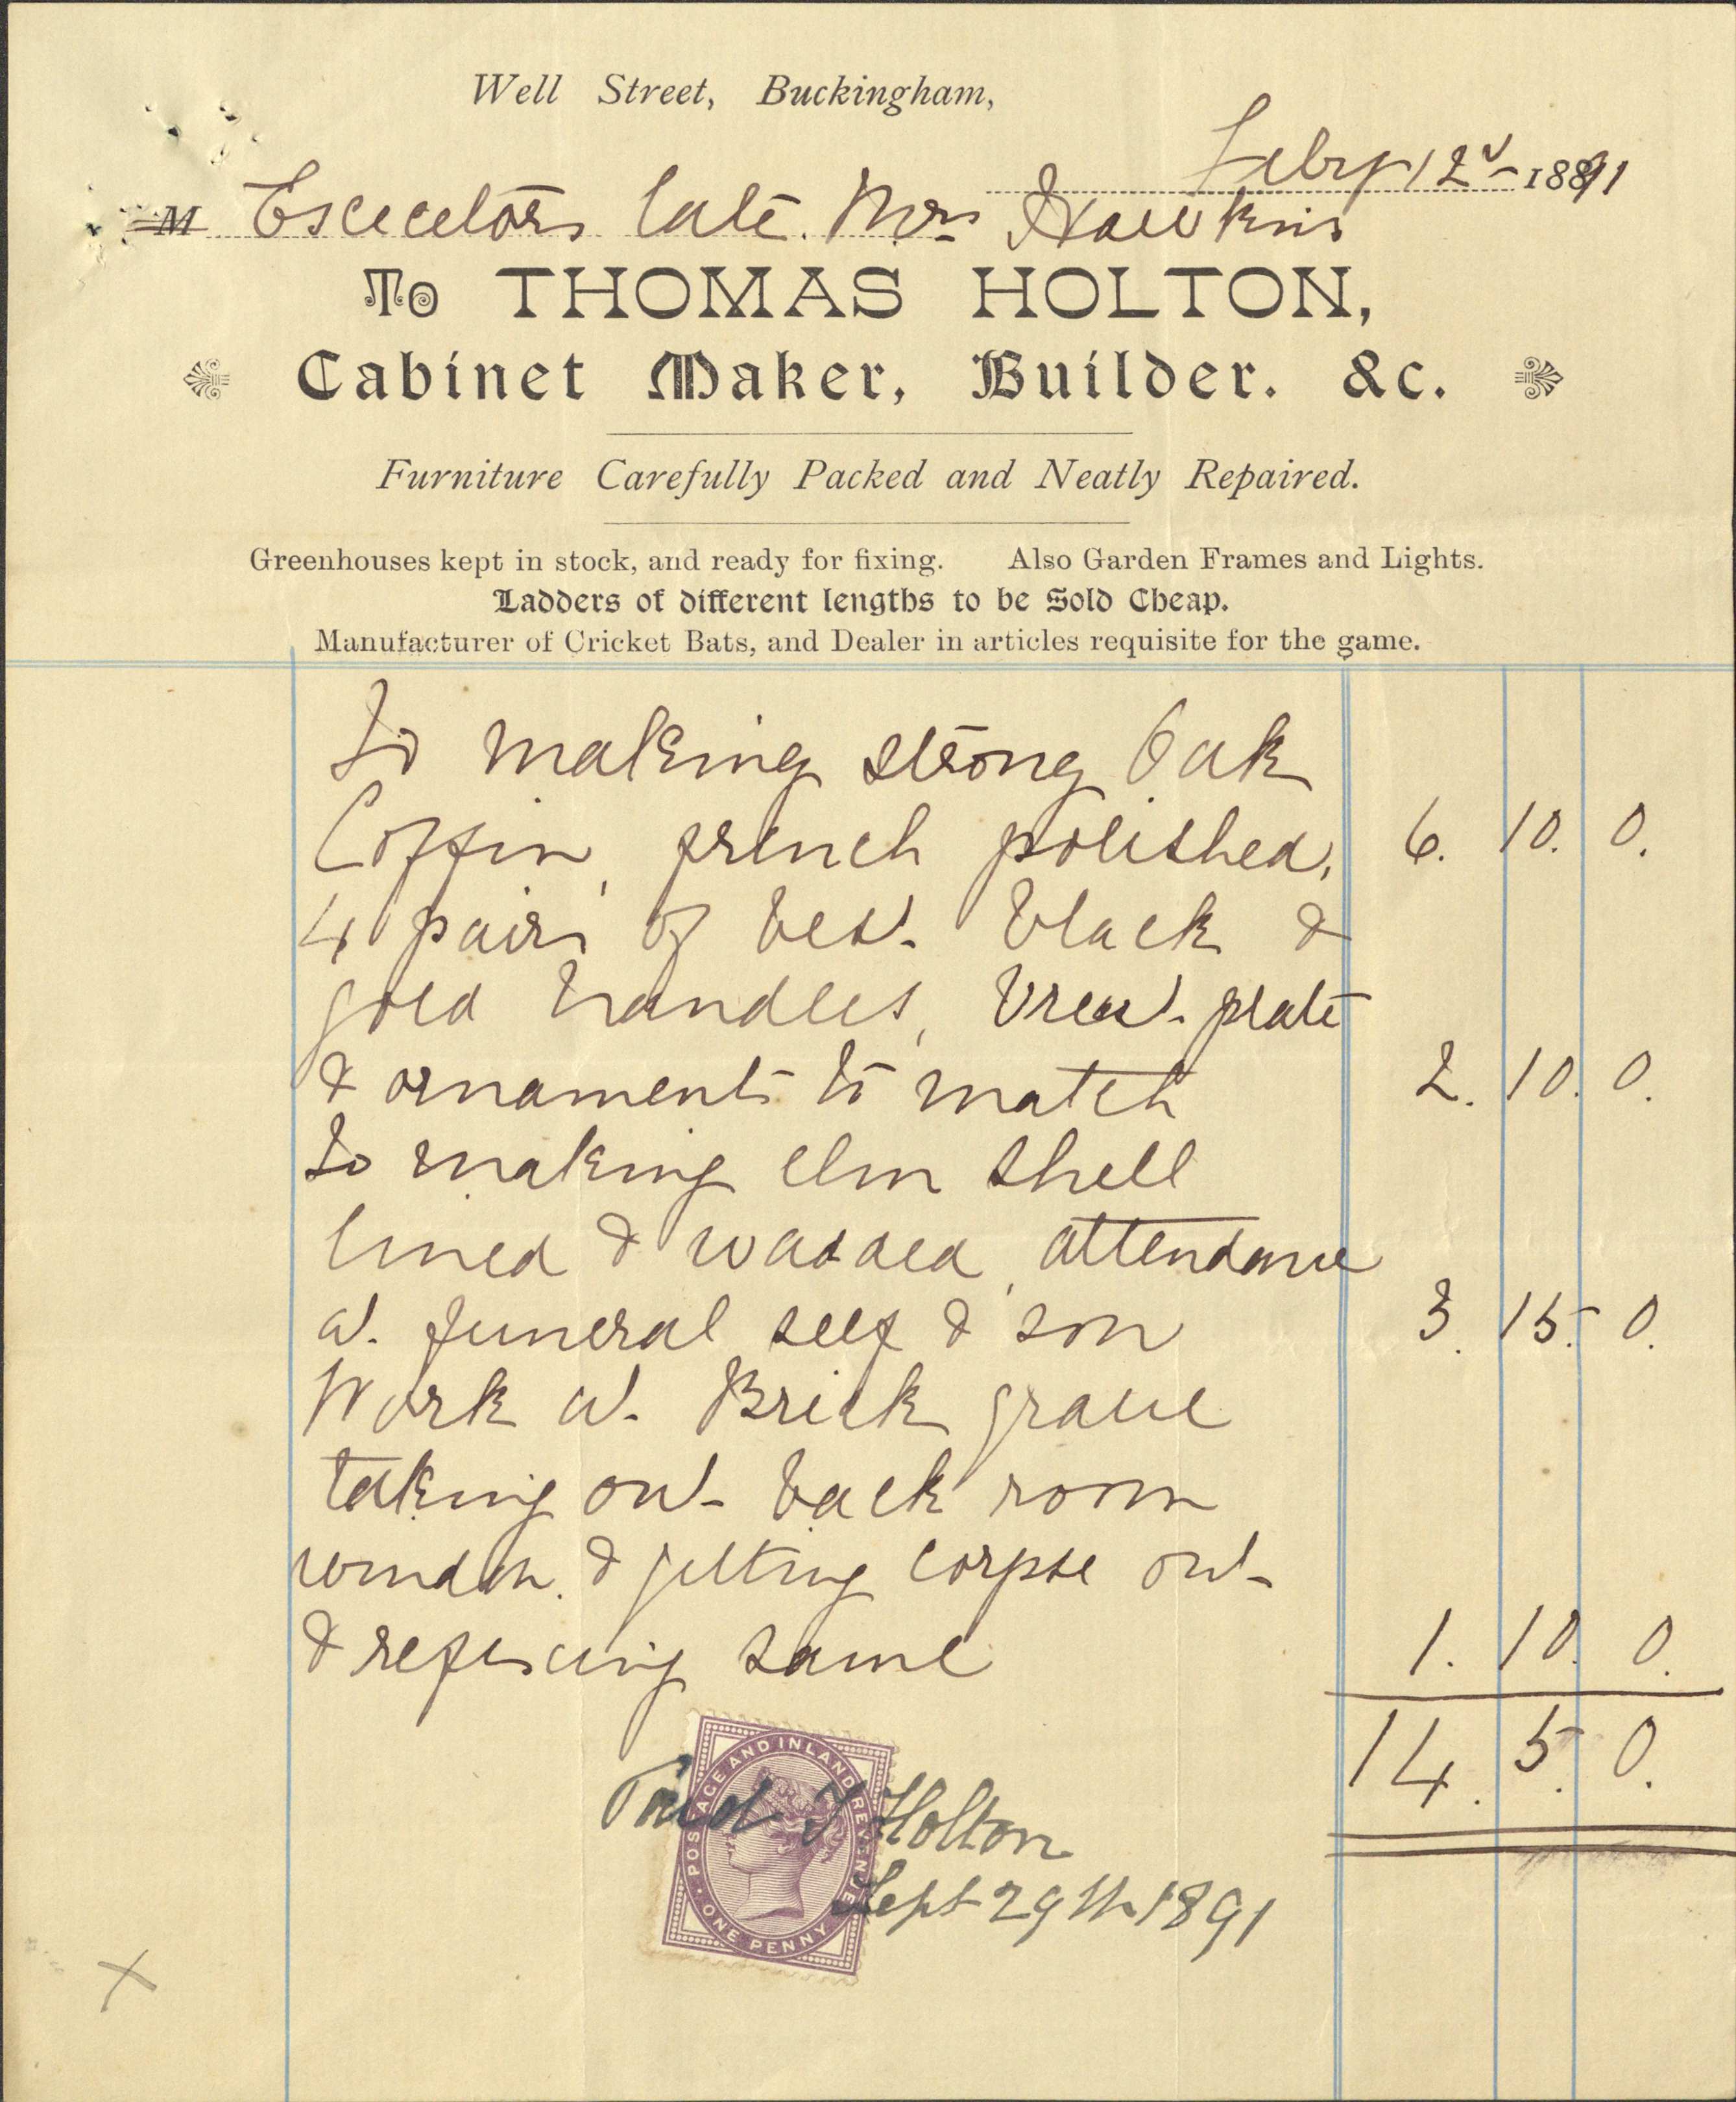 Well Street, Buckingham,
Feby 12 1891
M Executors late Mrs Hawkins
To THOMAS HOLTON,
Cabinet Maker, Builder. &c.
Furniture Carefully Packed and Neatly Repaired.
Greenhouses kept in stock, and ready for fixing. Also Garden Frames and Lights.
Ladders of different lengths to be Sold Cheap.
Manufacturer of Cricket Bats, and Dealer in articles requisite for the game.
To making strong Oak
Coffin, french polished, 6. 10. 0.
4 pairs of best black &
gold handles, breast plate
& ornaments to match 2. 10. 0.
To making elm shell
lined & wadded, attendance
at funeral self & son 3. 15. 0.
Work at Brick grave
taking out back room
window. & getting corpse out
& refixing same 1. 10. 0.
14. 5. 0.
POSTAGE AND INLAND REVENUE
ONE PENNY
Paid T Holton
Sept 29th 1891
X